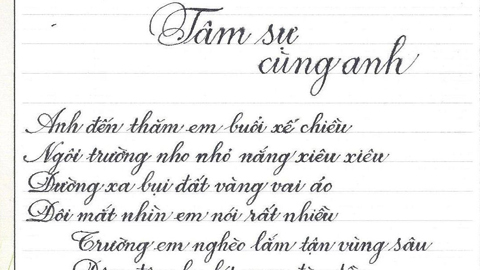 Tâm sự
cùng anh
Anh đến thăm em buổi xế chiều
Ngôi trường nho nhỏ nắng xiêu xiêu
Đường xa bụi đất vàng vai áo
Đôi mắt nhìn em nói rất nhiều
Trường em nghèo lắm tận vùng sâu